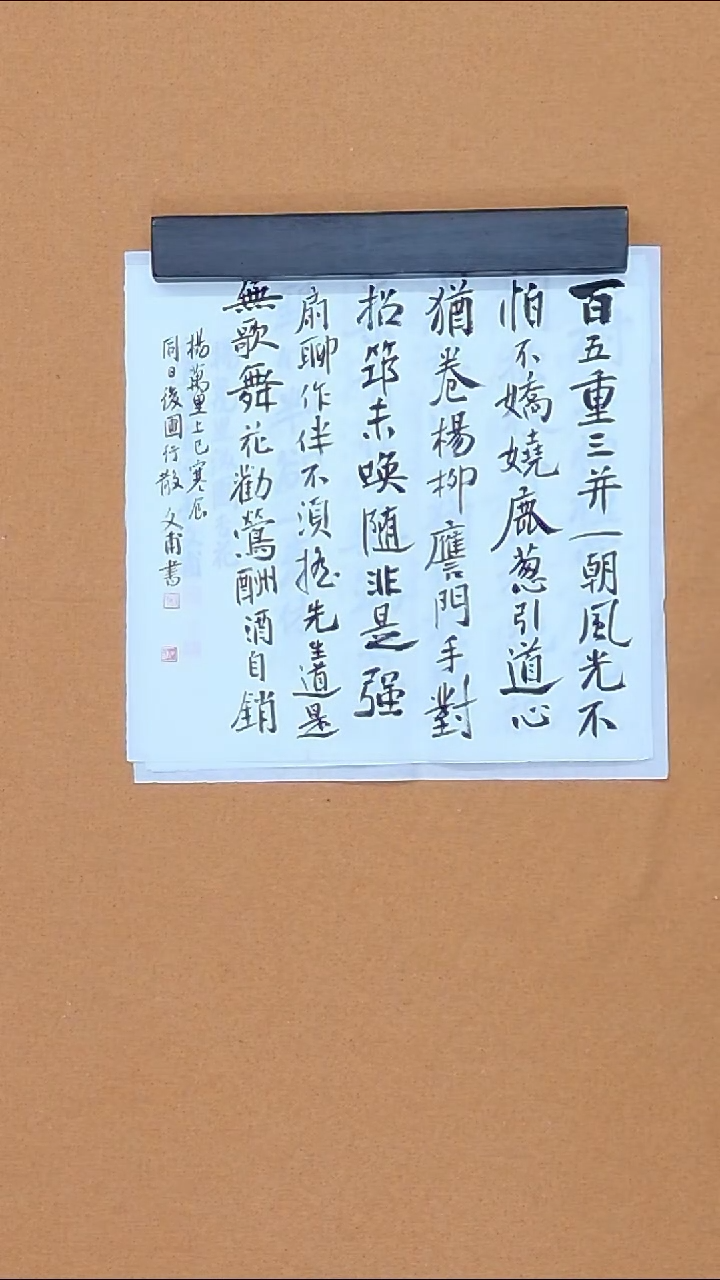 百五重三并一朝風光不
怕不嬌嬈鹿葱引道心
猶卷楊柳譍門手對
招筇未喚隨非是強
扇聊作伴不須搖先生道是
無歌舞花勸鶯酬酒自銷
楊萬里上巳寒食
同日後圃行散 文甫書